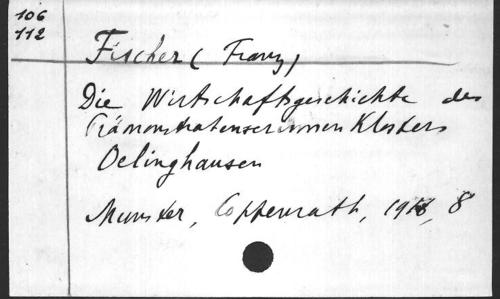 106
112
Fischer (Franz)
Die Wirtschaftsgeschichte des
Prämonstratenserinnen Klosters
Oelinghausen
Munster, Coppenrath, 8